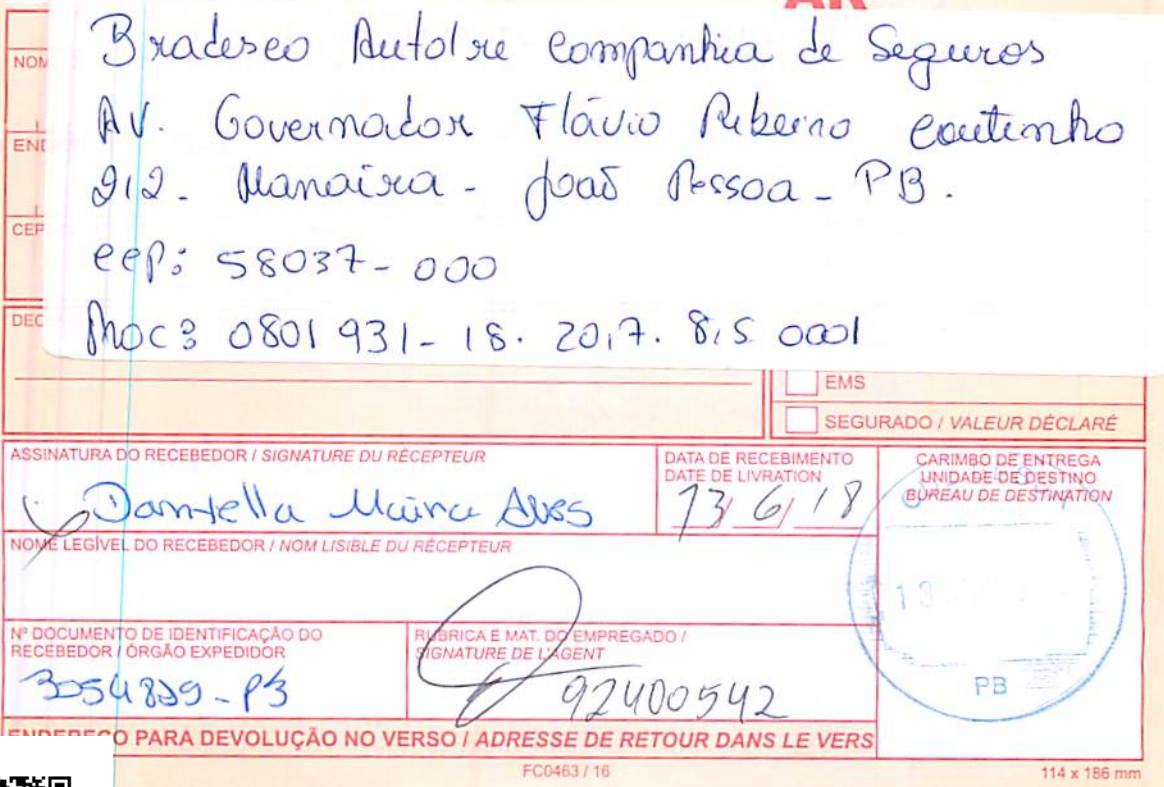 AR
Bradesco Auto/re Companhia de Seguros
NOM
AV. Governador Flávio Ribeiro Coutinho
END
212 - Manaíra - João Pessoa - PB.
CEP
CEP: 58037-000
DEC
Proc: 0801931-18.2017.8.15.0001
EMS
SEGURADO / VALEUR DÉCLARÉ
ASSINATURA DO RECEBEDOR / SIGNATURE DU RÉCEPTEUR
DATA DE RECEBIMENTO
DATE DE LIVRATION
CARIMBO DE ENTREGA
UNIDADE DE DESTINO
BUREAU DE DESTINATION
Alves
13/6/18
NOME LEGÍVEL DO RECEBEDOR / NOM LISIBLE DU RÉCEPTEUR
13
Nº DOCUMENTO DE IDENTIFICAÇÃO DO
RECEBEDOR / ÓRGÃO EXPEDIDOR
RUBRICA E MAT. DO EMPREGADO /
SIGNATURE DE L'AGENT
92400542
PB
ENDEREÇO PARA DEVOLUÇÃO NO VERSO / ADRESSE DE RETOUR DANS LE VERS
FC0463 / 16
114 x 186 mm